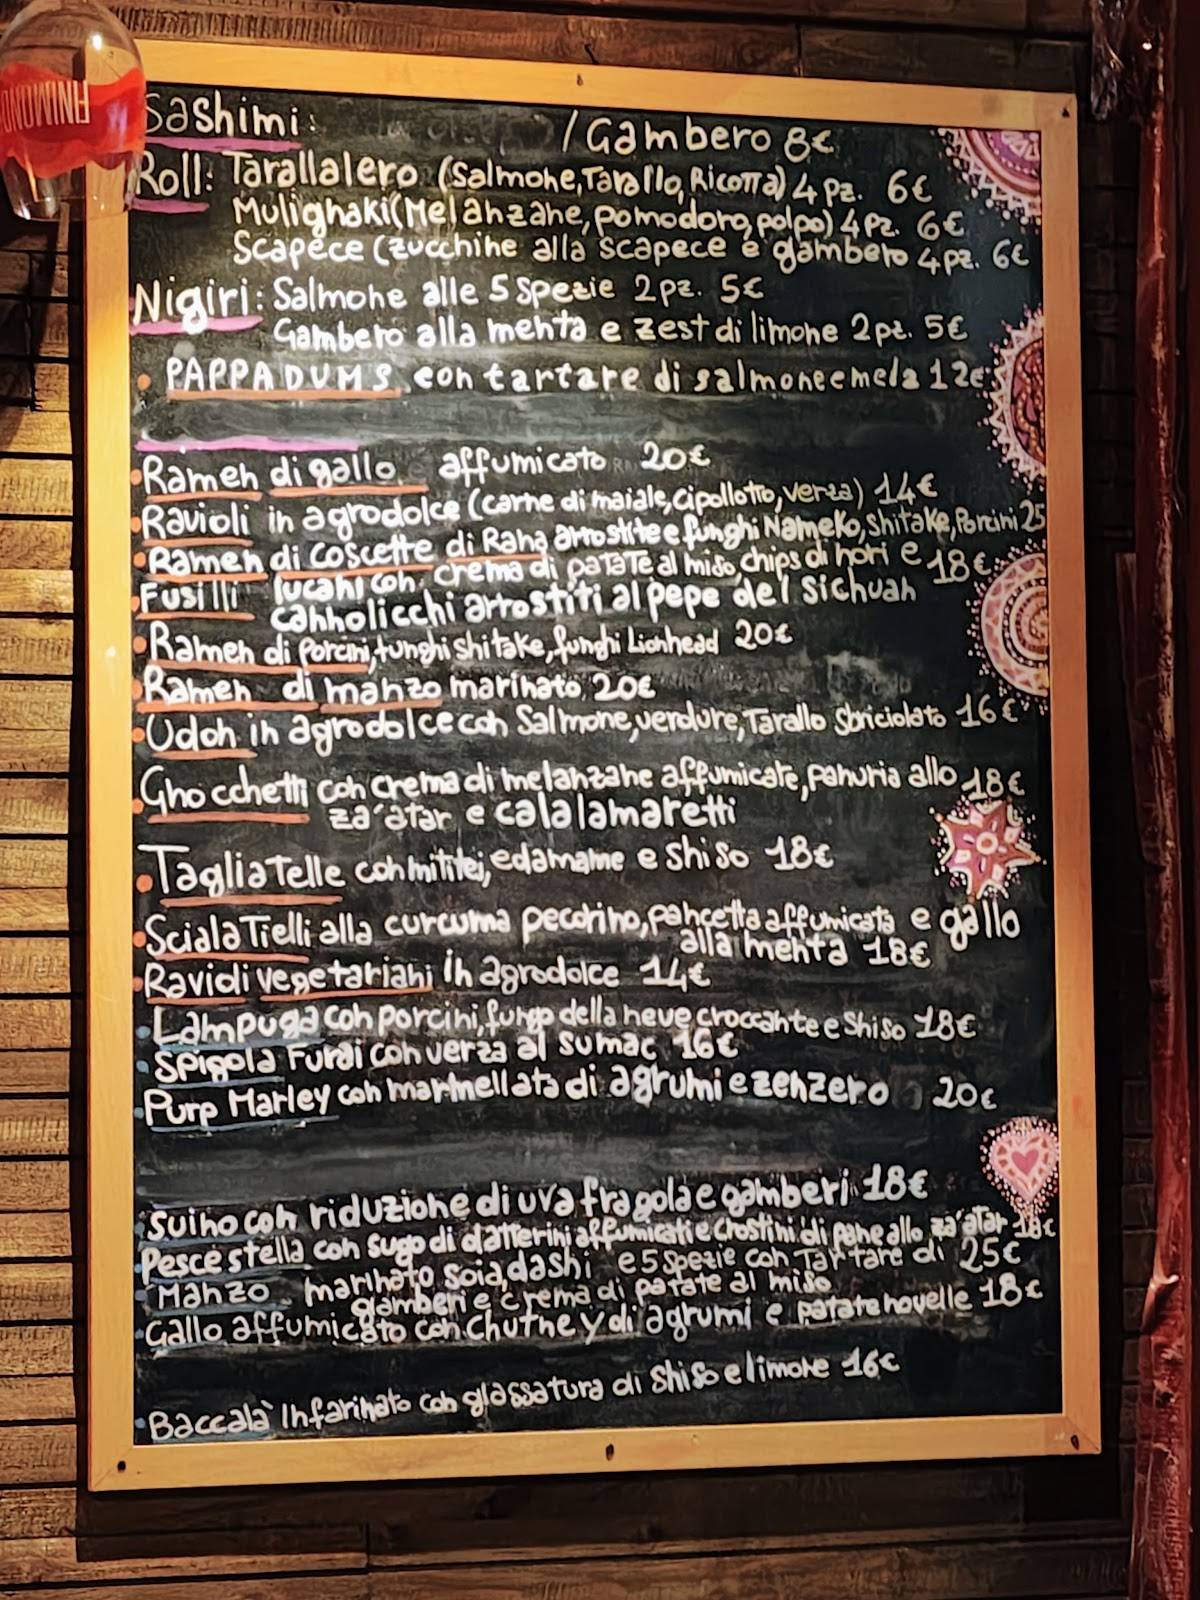 Sashimi: /Gambero 8€
Roll: Tarallalero (Salmone, Tarallo, Ricotta) 4 pz. 6€
Mulignaki (Melanzane, pomodoro, polpo) 4 pz. 6€
Scapece (zucchine alla scapece e gambero 4 pz. 6€
Nigiri: Salmone alle 5 Spezie 2 pz. 5€
Gambero alla menta e zest di limone 2 pz. 5€
PAPPADUMS con tartare di salmone e mela 12€
Ramen di gallo affumicato 20€
Ravioli in agrodolce (carne di maiale, cipollotto, verza) 14€
Ramen di coscette di Rana arrostite e funghi Nameko, shitake, Porcini 25
Fusilli lucani con crema di patate al miso, chips di nori e 18€
cannolicchi arrostiti al pepe del Sichuan
Ramen di porcini, funghi shitake, funghi Lionhead 20€
Ramen di manzo marinato 20€
Udon in agrodolce con Salmone, verdure, Tarallo Sbriciolato 16€
Gnocchetti con crema di melanzane affumicate, panuria allo 18€
za'atar e calalamaretti
Tagliatelle con mitilei, edamame e shiso 18€
Scialatielli alla curcuma pecorino, pancetta affumicata e gallo
alla menta 18€
Ravioli vegetariani in agrodolce 14€
Lampuga con porcini, fungo della neve croccante e shiso 18€
Spigola Furai con verza al sumac 16€
Purp Marley con marmellata di agrumi e zenzero 20€
Suino con riduzione di uva fragola e gamberi 18€
Pesce stella con sugo di datterini affumicati e crostini di pane allo za'atar 18€
Manzo marinato soia, dashi e 5 spezie con Tartare di 25€
gamberi e crema di patate al miso
Gallo affumicato con chutney di agrumi e patate novelle 18€
Baccalà infarinato con glassatura di shiso e limone 16€